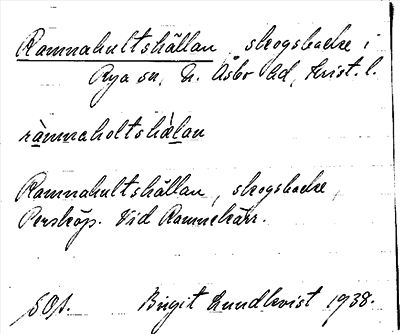 Ramnahultshällan, skogsbacke i
Rya sn, N. Åsbo hd, Krist. l.
ràmnaholtshæ̀lan
Ramnahultshällan, skogsbacke,
Perstorp. Vid Ramnekärr.
Birgit Lundkvist 1938.